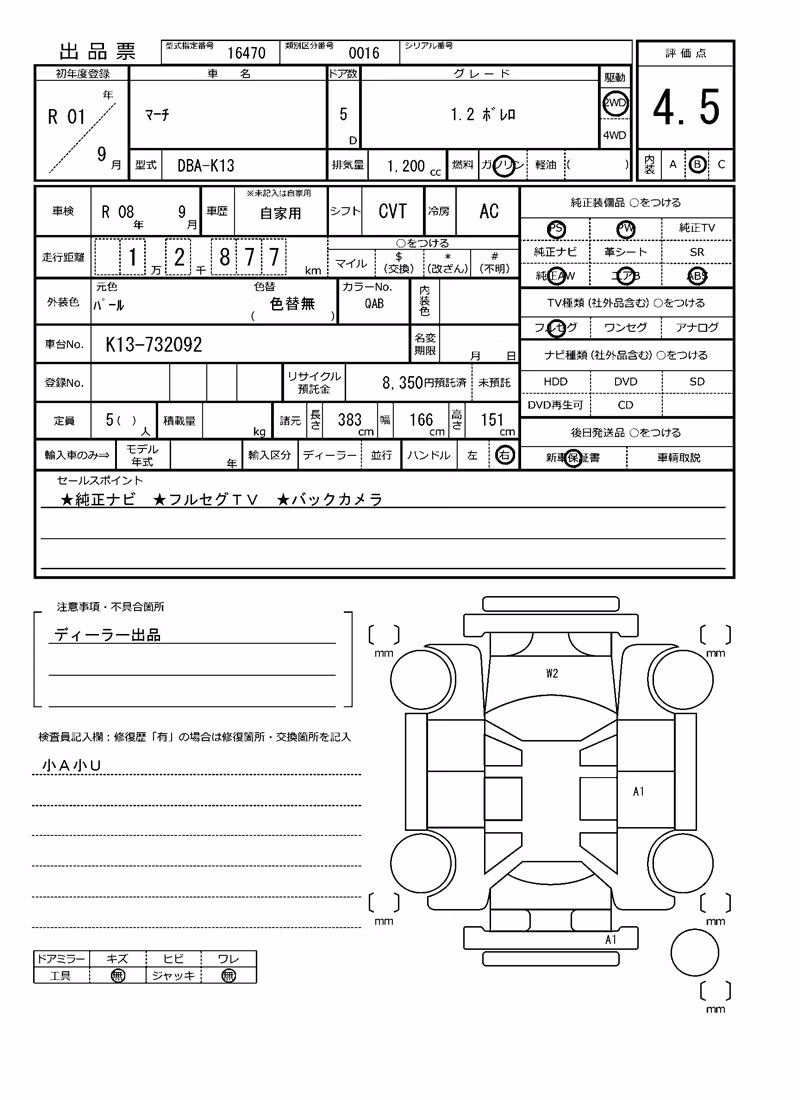 出品票 型式指定番号 16470 類別区分番号 0016 シリアル番号 評価点
初年度登録 車名 ドア数 グレード 駆動
R 01 年 9 月 マーチ 5 D 1.2 ﾎﾞﾚﾛ 2WD 4WD 4.5
型式 DBA-K13 排気量 1,200 cc 燃料 ガソリン 軽油 ( ) 内装 A B C
車検 R 08 年 9 月 車歴 ※未記入は自家用 自家用 シフト CVT 冷房 AC
純正装備品 ○をつける
PS PW 純正TV
純正ナビ 革シート SR
純正AW エアB ABS
走行距離 1 万 2 千 8 7 7 km ○をつける マイル $ (交換) * (改ざん) # (不明)
外装色 元色 ﾊﾟｰﾙ 色替 ( 色替無 ) カラーNo. QAB 内装色
TV種類 (社外品含む) ○をつける
フルセグ ワンセグ アナログ
車台No. K13-732092 名変期限 月 日
ナビ種類 (社外品含む) ○をつける
HDD DVD SD
DVD再生可 CD
登録No. リサイクル預託金 8,350円預託済 未預託
定員 5 ( ) 人 積載量 kg 諸元 長さ 383 cm 幅 166 cm 高さ 151 cm
後日発送品 ○をつける
新車保証書 車輌取説
輸入車のみ⇒ モデル年式 年 輸入区分 ディーラー 並行 ハンドル 左 右
セールスポイント
★純正ナビ ★フルセグＴＶ ★バックカメラ
注意事項・不具合箇所
ディーラー出品
mm mm
W2
検査員記入欄：修復歴「有」の場合は修復箇所・交換箇所を記入
小Ａ小Ｕ
A1
mm mm
A1
ドアミラー キズ ヒビ ワレ
工具 無 ジャッキ 無
mm